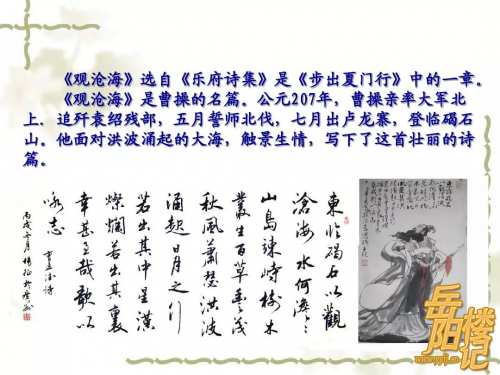 《观沧海》选自《乐府诗集》是《步出夏门行》中的一章。
《观沧海》是曹操的名篇。公元207年，曹操亲率大军北
上，追歼袁绍残部，五月誓师北伐，七月出卢龙寨，登临碣石
山。他面对洪波涌起的大海，触景生情，写下了这首壮丽的诗
篇。
東临碣石以觀
滄海水何澹澹
山島竦峙樹木
叢生百草豐茂
秋風蕭瑟洪波
涌起日月之行
若出其中星漢
燦爛若出其裏
幸甚至哉歌以
咏志
岳阳楼记